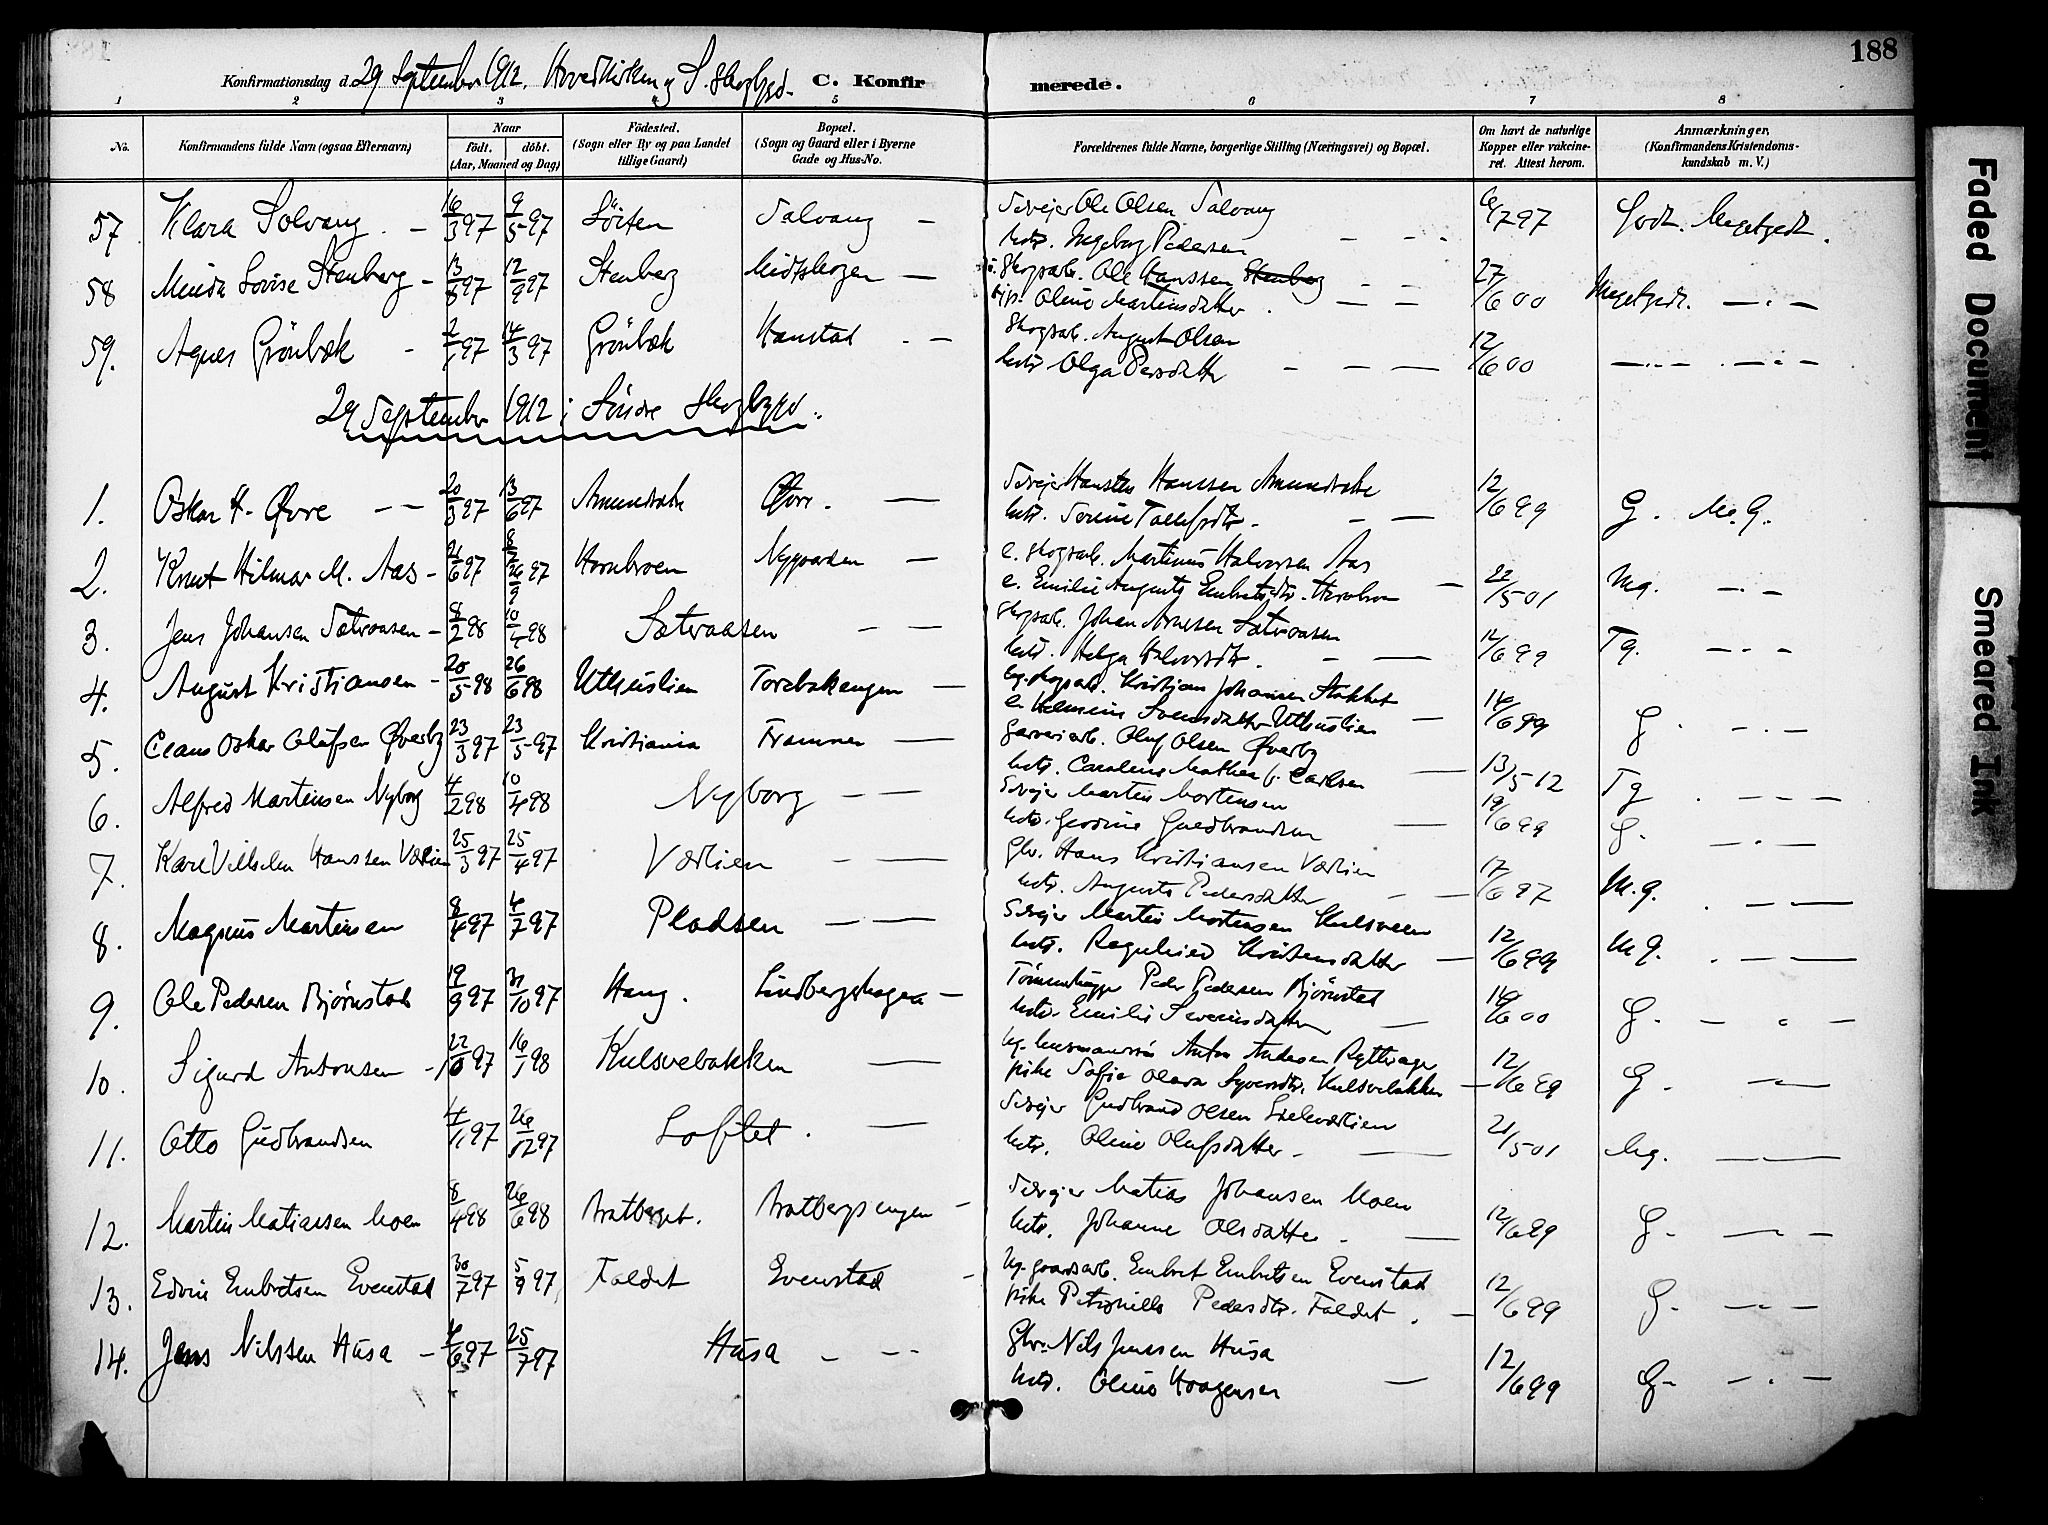 188
Konfirmationsdag d. 29 September 1912. Hovedkirken og S. Skogbygd. C. Konfirmerede.
1 2 3 4 5 6 7 8
No.
Konfirmandens fulde Navn (ogsaa Efternavn)
Naar
født. døbt.
(Aar, Maaned og Dag)
Fødested.
(Sogn eller By og paa Landet
tillige Gaard)
Bopæl.
(Sogn og Gaard eller i Byerne
Gade og Hus-No.
Forældrenes fulde Navne, borgerlige Stilling (Næringsvei) og Bopæl.
Om havt de naturlige
Kopper eller vakcine-
ret. Attest herom.
Anmærkninger,
(Konfirmandens Kristendoms-
kundskab m. V.)
57. Klara Solvang 16/3 97 9/5 97 Solvang Selvejer Ole Olsen Solvang 6/7 97 Godt. Megetgodt.
hstr. Ingeborg Pedersen
58 Minda Lovise Stenberg 13/8 97 12/9 97 Stenberg Midtskogen Skogsarb. Ole Hanssen Stenberg 27/6 00 Megetgodt.
Oline Martinsdatter
59. Agnes Grönbæk 2/1 97 14/3 97 Grönbæk Hanstad Skogsarb. August Olsen 12/6 00
hstr Olga Persdatter
29 September 1912 i Söndre Skogbygd.
1. Oskar H. Øvre 20/3 97 13/6 97 Øvre. Selvejer Hanssen 12/6 99 G. M.G.
hstr.
2. Knut Hilmar M. Aas 21/6 97 26/9 97 Hornbroen Nygaarden e. Skogsarb. Martinus Halvorsen Aas 22/5 01 Mg.
e. Emilie Augusta Embretsdtr.
3. Jens Johansen Sætraasen 8/2 98 10/4 98 Sætraasen Skogsarb. Johan Arnesen Sætraasen 12/6 99 Tg.
hstr. Helga Halvorsdtr.
4. August Kristiansen 20/5 98 26/6 98 Uthuslien Torsbakengen Kristian Johansen Stakket 14/6 99 G
Svensdatter Uthuslien
5. Claus Oskar Olufsen Øverby 23/3 97 23/5 97 Kristiania Garveriarb. Oluf Olsen Øverby 13/5 12 Tg
hstr. Carolene Mathea f. Carlsen
6. Alfred Martinsen Nyborg 4/2 98 10/4 98 Nyborg Selvejer Martin Mortensen 19/6 99 G.
hstr. Gudbrandsen
7. Karl Vilhelm Hanssen Værlien 25/3 97 25/4 97 Værlien Hans Kristiansen Værlien 17/6 97 M.g.
hstr. Augusta Pedersdatter
8. Magnus Martinsen 8/4 97 4/7 97 Pladsen Selvejer Martin Mortensen Kulsveen 12/6 99 Mg.
hstr. Kristensdatter
9. Ole Pedersen Bjørnstad 19/9 97 31/10 97 Haug. Lindbergshagen Tömmerhugger Peder Pedersen Bjørnstad 14/6 00 G.
hstr. Emilie Severinsdatter
10. Sigurd Antonsen 22/10 97 16/1 98 Kulsvebakken Ug. husmandssøn Anton Andersen 12/6 99 G.
pike Sofie Olava Syversdtr. Kulsvebakken
11. Otto Gudbrandsen 4/1 97 26/12 97 Loftet. Selvejer Gudbrand Olsen 21/5 01 Mg.
hstr. Oline Olufsdatter
12. Martin Matiassen Moen 8/4 98 26/6 98 Bratberget. Bratbergsengen Selvejer Matias Johansen Moen 12/6 99 G.
hstr. Johanne Olsdatter
13. Edvin Embretsen Evenstad 30/7 97 5/9 97 Faldet Evenstad Ug. gaardsarb. Embret Embretsen Evenstad 12/6 99 G.
pike Petronille Pedersdtr. Faldet.
14. Jens Nilssen Husa 4/6 97 25/7 97 Husa Gbr. Nils Jenssen Husa 12/6 99 G.
hstr. Oline Haagensen
Faded Document
Smeared Ink